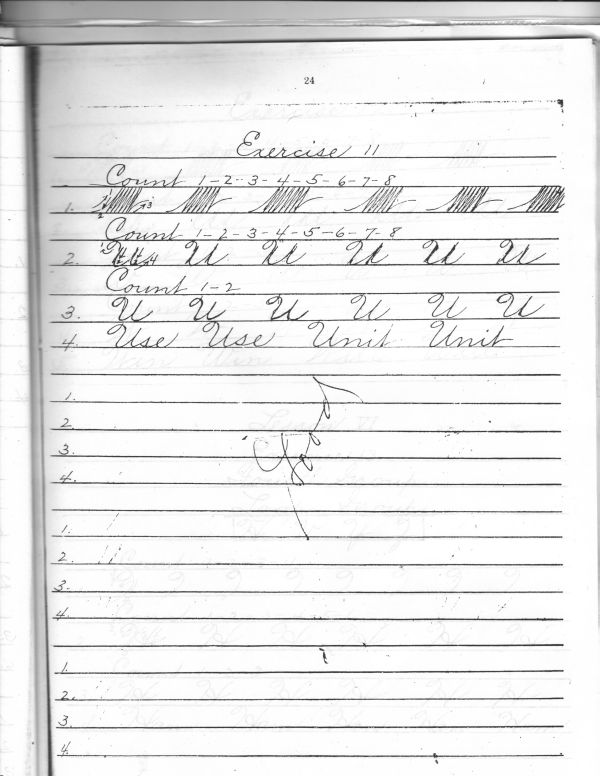 24
Exercise 11
Count 1-2-3-4-5-6-7-8
1.
Count 1-2-3-4-5-6-7-8
2. U U U U U U
Count 1-2
3. U U U U U U
4. Use Use Unit Unit
1.
2.
3.
4.
Good
1.
2.
3.
4.
1.
2.
3.
4.